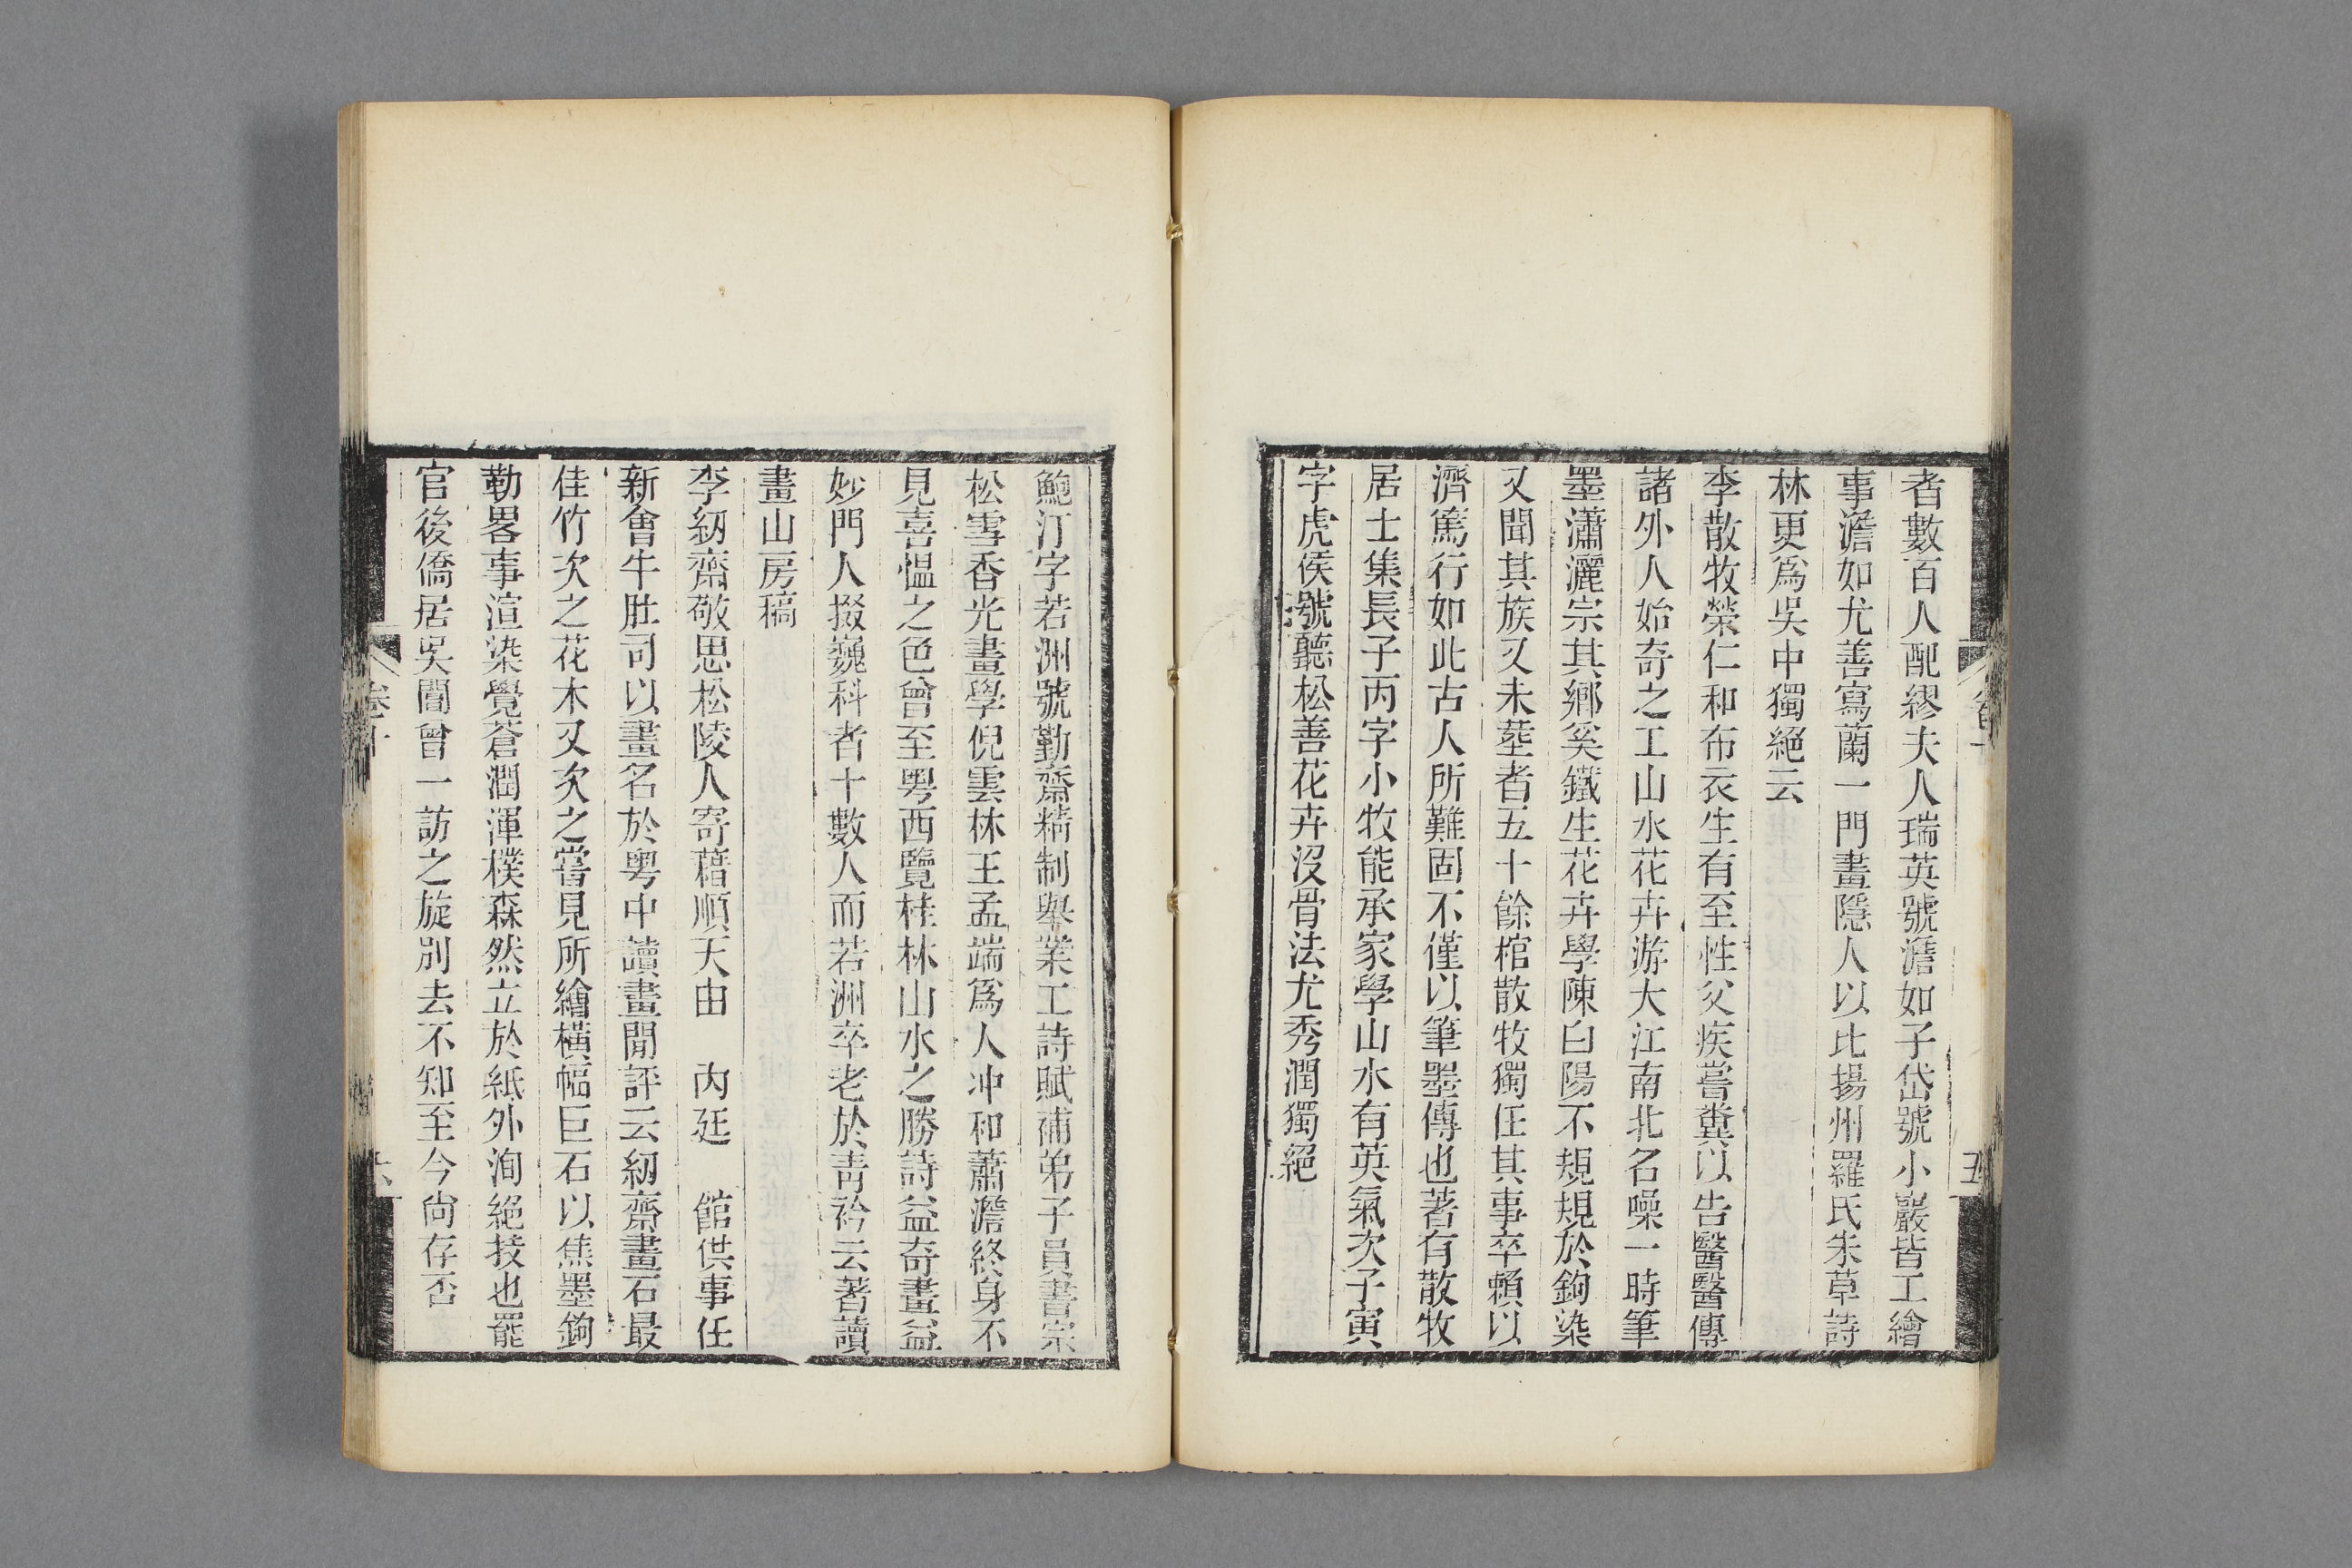 者數百人配繆夫人瑞英號澹如子岱號小巖皆工繪
事澹如尤善寫蘭一門畫隱人以比揚州羅氏朱草詩
林更爲吳中獨絕云
李散牧榮仁和布衣生有至性父疾嘗糞以告醫醫傳
諸外人始奇之工山水花卉游大江南北名噪一時筆
墨瀟灑宗其鄉奚鐵生花卉學陳白陽不規規於鉤染
又聞其族又未塟者五十餘棺散牧獨任其事卒賴以
濟篤行如此古人所難固不僅以筆墨傳也著有散牧
居士集長子丙字小牧能承家學山水有英氣次子寅
字虎侯號聽松善花卉沒骨法尤秀潤獨絕
五
鮑汀字若洲號勤齋精制舉業工詩賦補弟子員書宗
松雪香光畫學倪雲林王孟端爲人冲和蕭澹終身不
見喜慍之色曾至粤西覽桂林山水之勝詩益奇畫益
妙門人掇巍科者十數人而若洲卒老於靑衿云著讀
畫山房稿
李紉齋敬思松陵人寄藉順天由　內廷　館供事任
新會牛肚司以畫名於粤中讀畫閒評云紉齋畫石最
佳竹次之花木又次之嘗見所繪橫幅巨石以焦墨鉤
勒畧事渲染覺蒼潤渾樸森然立於紙外洵絕技也罷
官後僑居吳閶曾一訪之旋別去不知至今尙存否
卷十
六